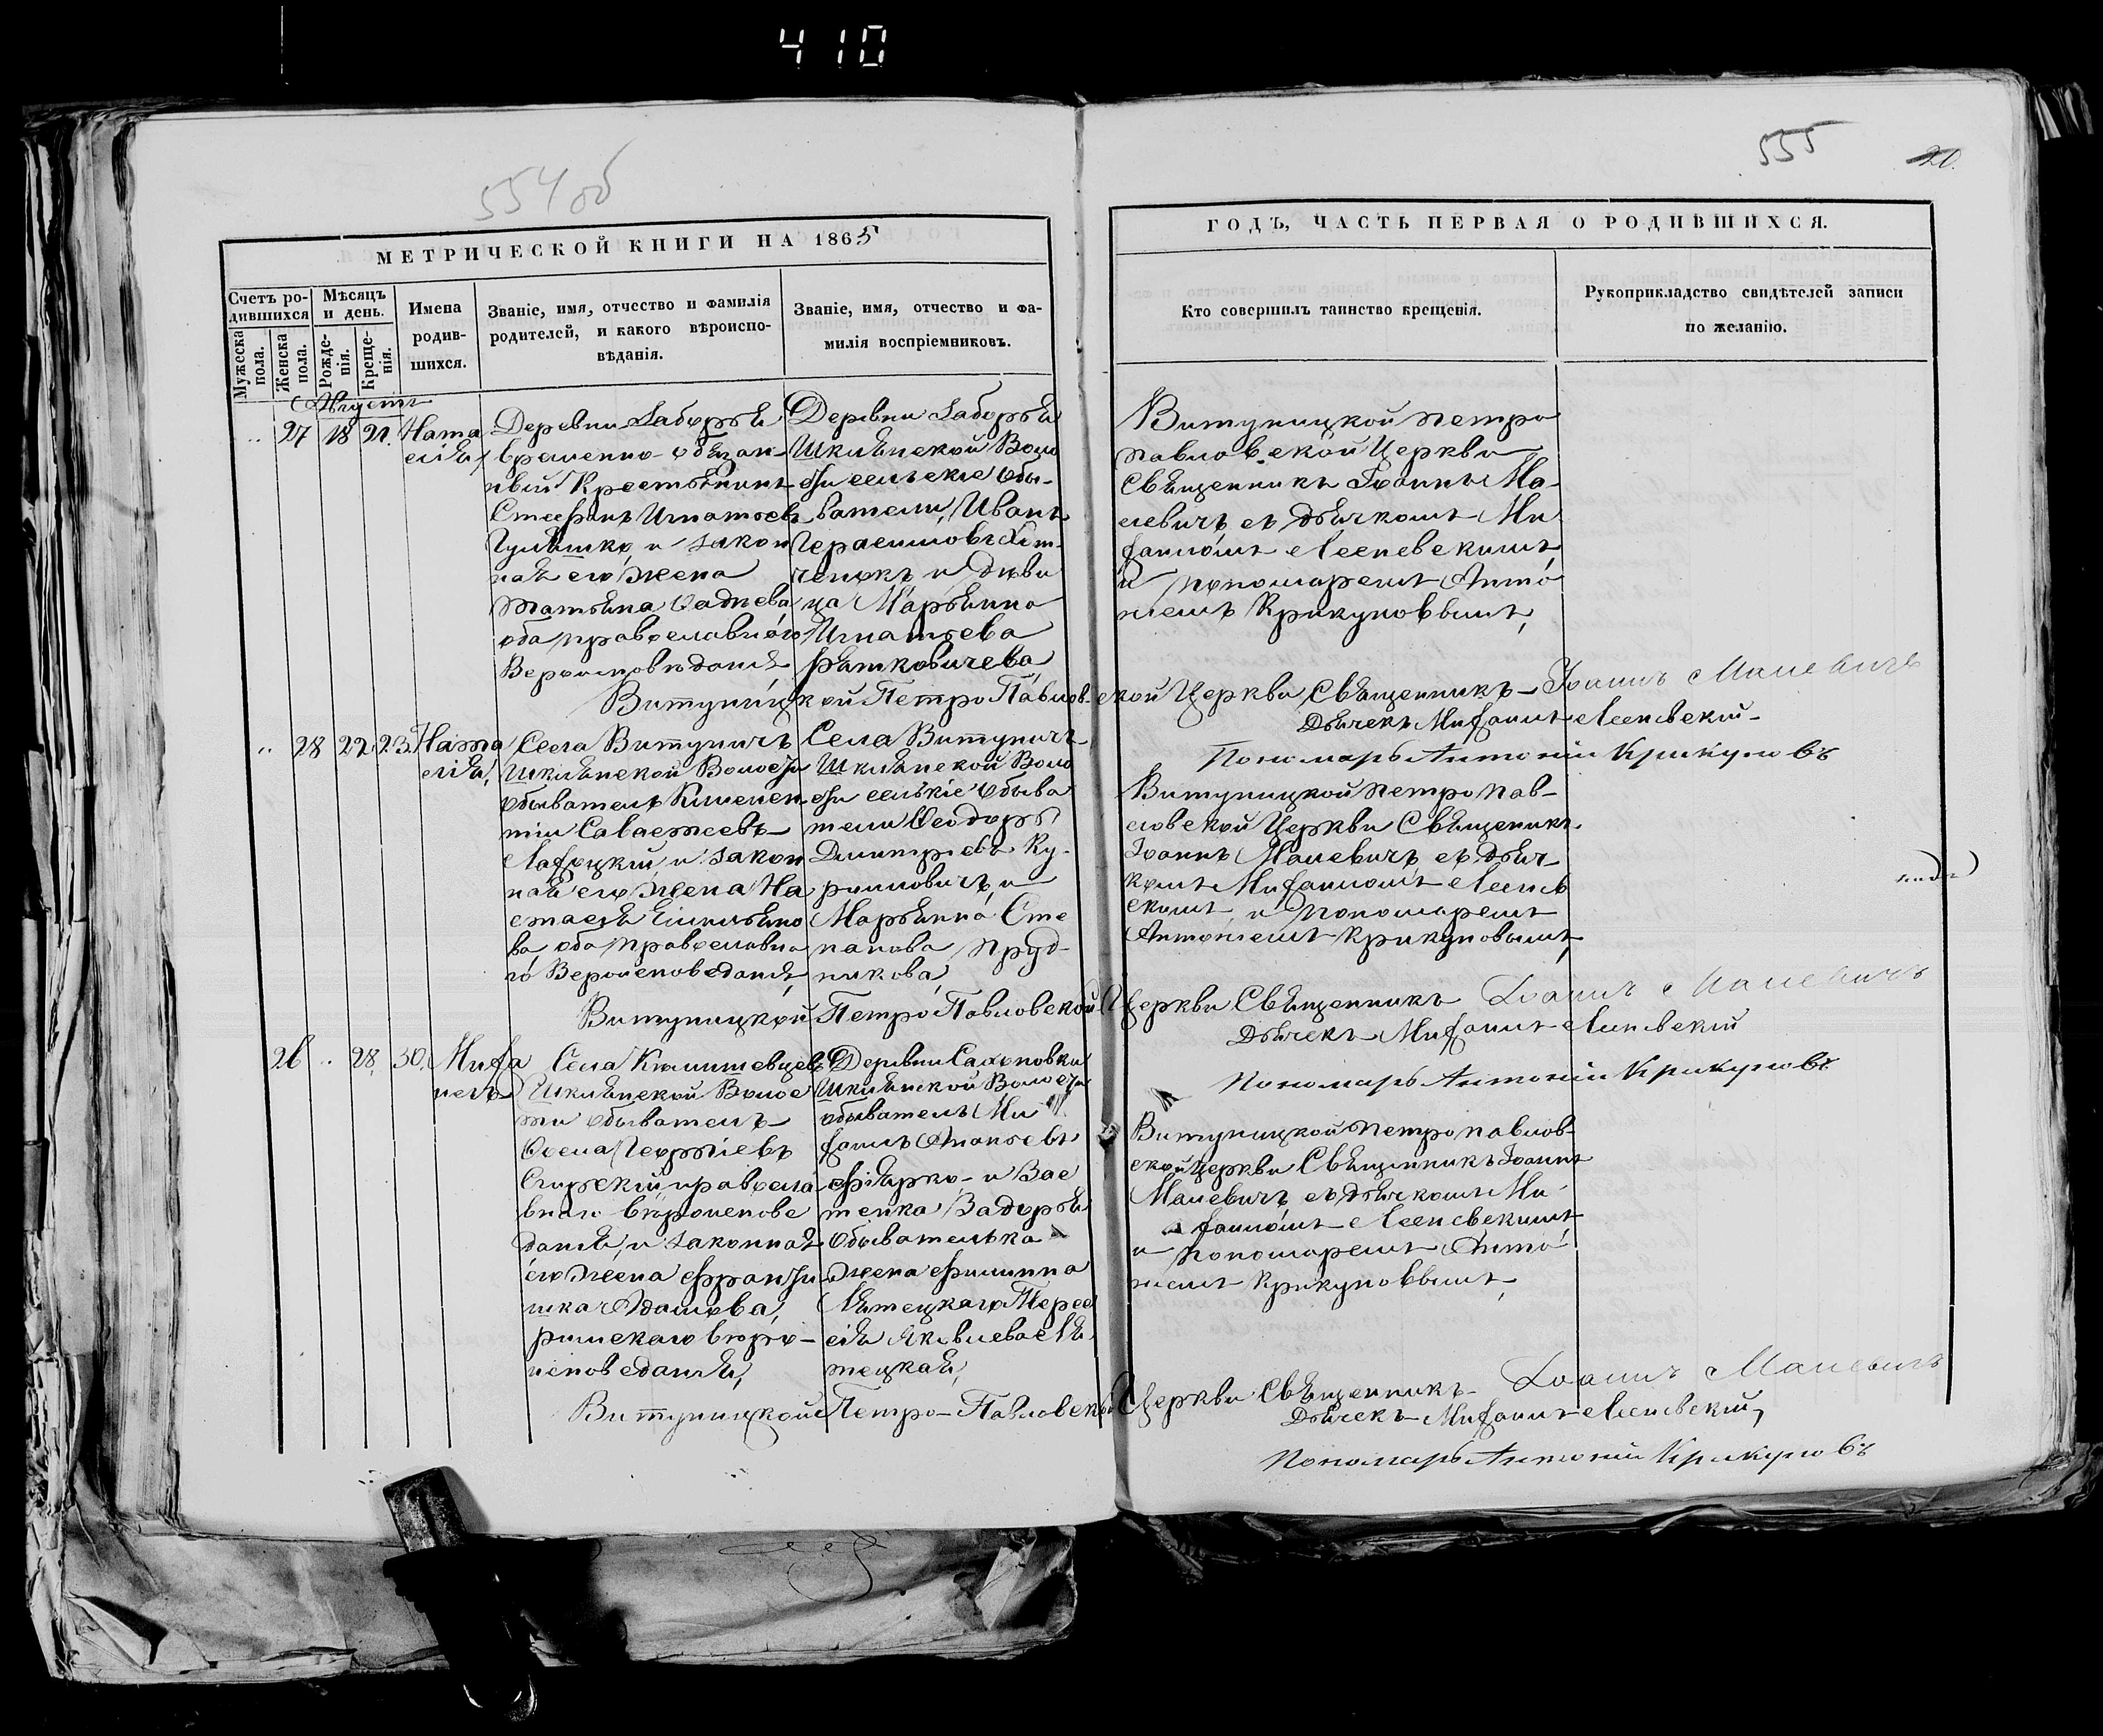 410
554 об
555
20.
МЕТРИЧЕСКОЙ КНИГИ НА 1865
ГОДЪ, ЧАСТЬ ПЕРВАЯ О РОДИВШИХСЯ.
Счетъ ро-
дившихся
Мужеска
пола.
Женска
пола.
Мѣсяцъ
и день.
Рожде-
нія.
Креще-
нія.
Имена
родив-
шихся.
Званіе, имя, отчество и фамилія
родителей, и какого вѣроиспо-
вѣданія.
Званіе, имя, отчество и фа-
милія воспріемниковъ.
Кто совершилъ таинство крещенія.
Рукоприкладство свидѣтелей записи
по желанію.
Августъ
27 18 21.
Ната
лія,
Деревни Заборья
временно-обязан
ный Крестьянинъ
Стефанъ Игнатьевъ
и закон
ная его жена
Татьяна
оба православнаго
Вероисповѣданія
Деревни Заборья
Шклянской Воло
сти сельскіе обы-
ватели, Иванъ
Герасимовъ
и дѣви
ца Марьянна
Игнатьева
Рятковичева
Витуницкой Петро
Павловской Церкви
Священникъ Іоаннъ Ма-
левичъ съ дьячкомъ Ми
фаніомъ Лесневскимъ
и пономаремъ Анто
ніемъ Крикуновымъ,
Витуницкой Петро Павловской Церкви Священникъ Іоаннъ Малевичъ
Дьячекъ Мифаній Лесневскій
Пономарь Антоній Крикуновъ
28 22 23.
Ната
лія,
Села Витуничъ
Шклянской Волости
обыватель Климен
тій Савастеевъ
и закон
ная его жена На
стасья Емильяно
ва, оба православна
го Вероисповеданія,
Села Витуничъ
Шклянской Воло
сти сельскіе обыва
тели Ѳеодоръ
Димитріевъ Ку-
риловичъ, и
Марьянна Сте
панова Пруд-
никова,
Витуницкой Петро Пав-
ловской Церкви Священикъ
Іоаннъ Малевичъ, съ дьяч-
комъ Мифаніомъ Леснев
скимъ и пономаремъ
Антоніемъ Крикуновымъ,
Витуницкой Петро Павловской Церкви Священникъ Іоаннъ Малевичъ
Дьячекъ Мифаній Лесневскій
Пономарь Антоній Крикуновъ
26 28. 30.
Села
Шклянской Волос
ти обыватель
Ѳома Георгіевъ
правосла
внаго вѣроиспове
данія, и законная
его жена Францы
шка Адамова,
римскаго вѣро-
исповеданія,
Деревни
Шклянской Волости
обыватель Ми
Ананьевъ
и Зас
тенка Задорья
Обывателька
жена Филиппа
Лятецкаго
Яковлева Ля
тецкая,
Витуницкой Петро Павлов-
ской Церкви Священникъ Іоаннъ
Малевичъ съ дьячкомъ Ми
фаніомъ Лесневскимъ
и пономаремъ Анто
ніемъ Крикуновымъ,
Витуницкой Петро-Павловской Церкви Священникъ Іоаннъ Малевичъ
Дьячекъ Мифаній Лесневскій,
Пономарь Антоній Крикуновъ